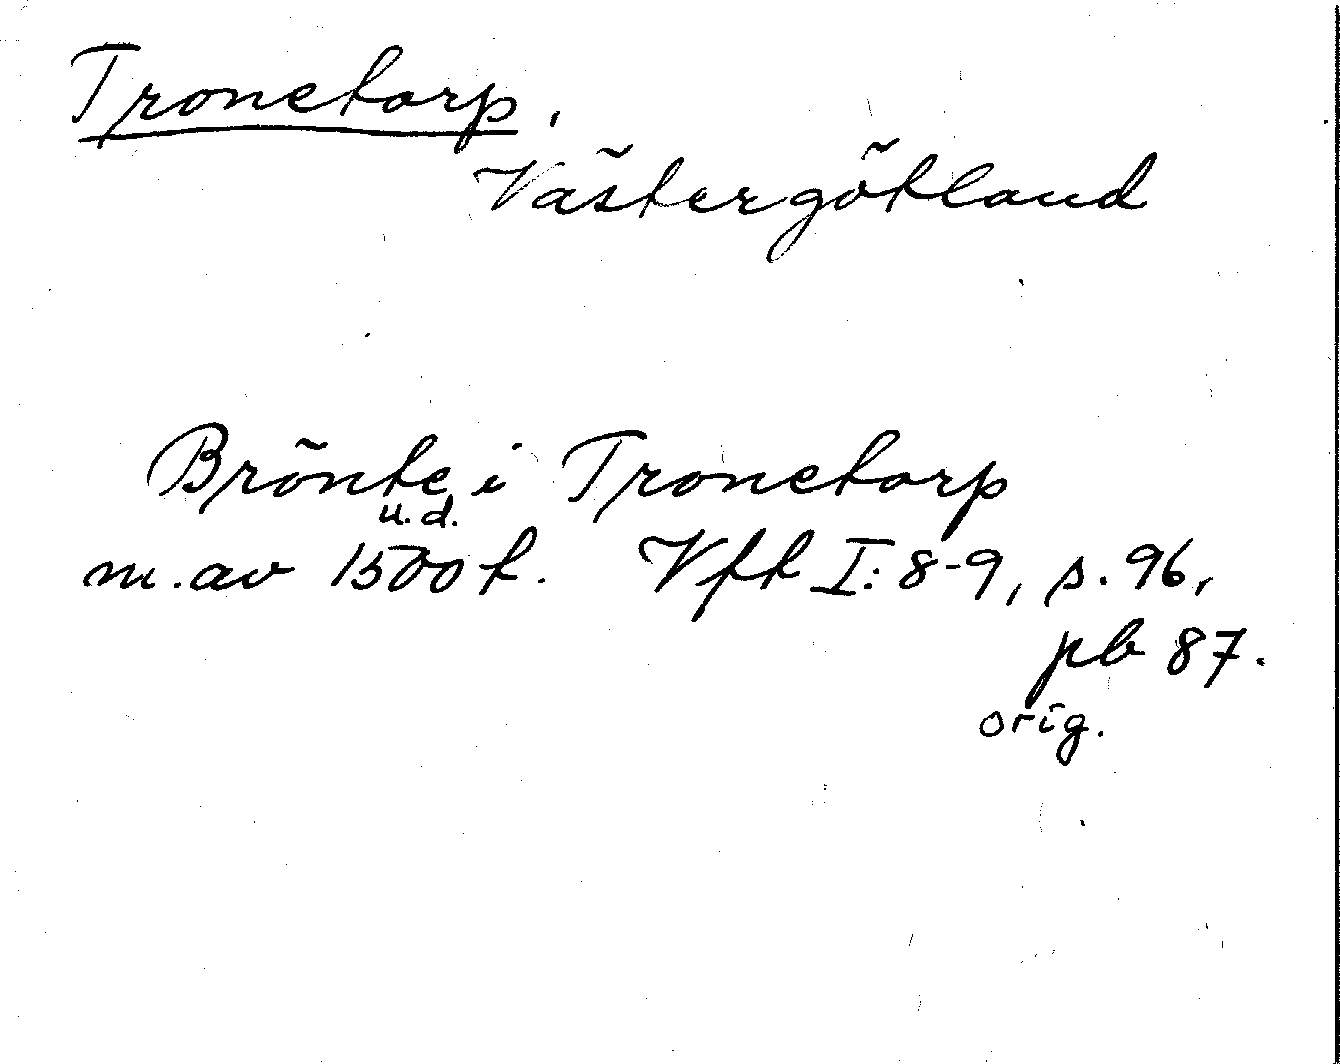 Tronetorp,
Västergötland
Brönte i Tronetorp
u.d.
m. av 1500 t. Vft I: 8-9, s. 96,
pb 87.
orig.